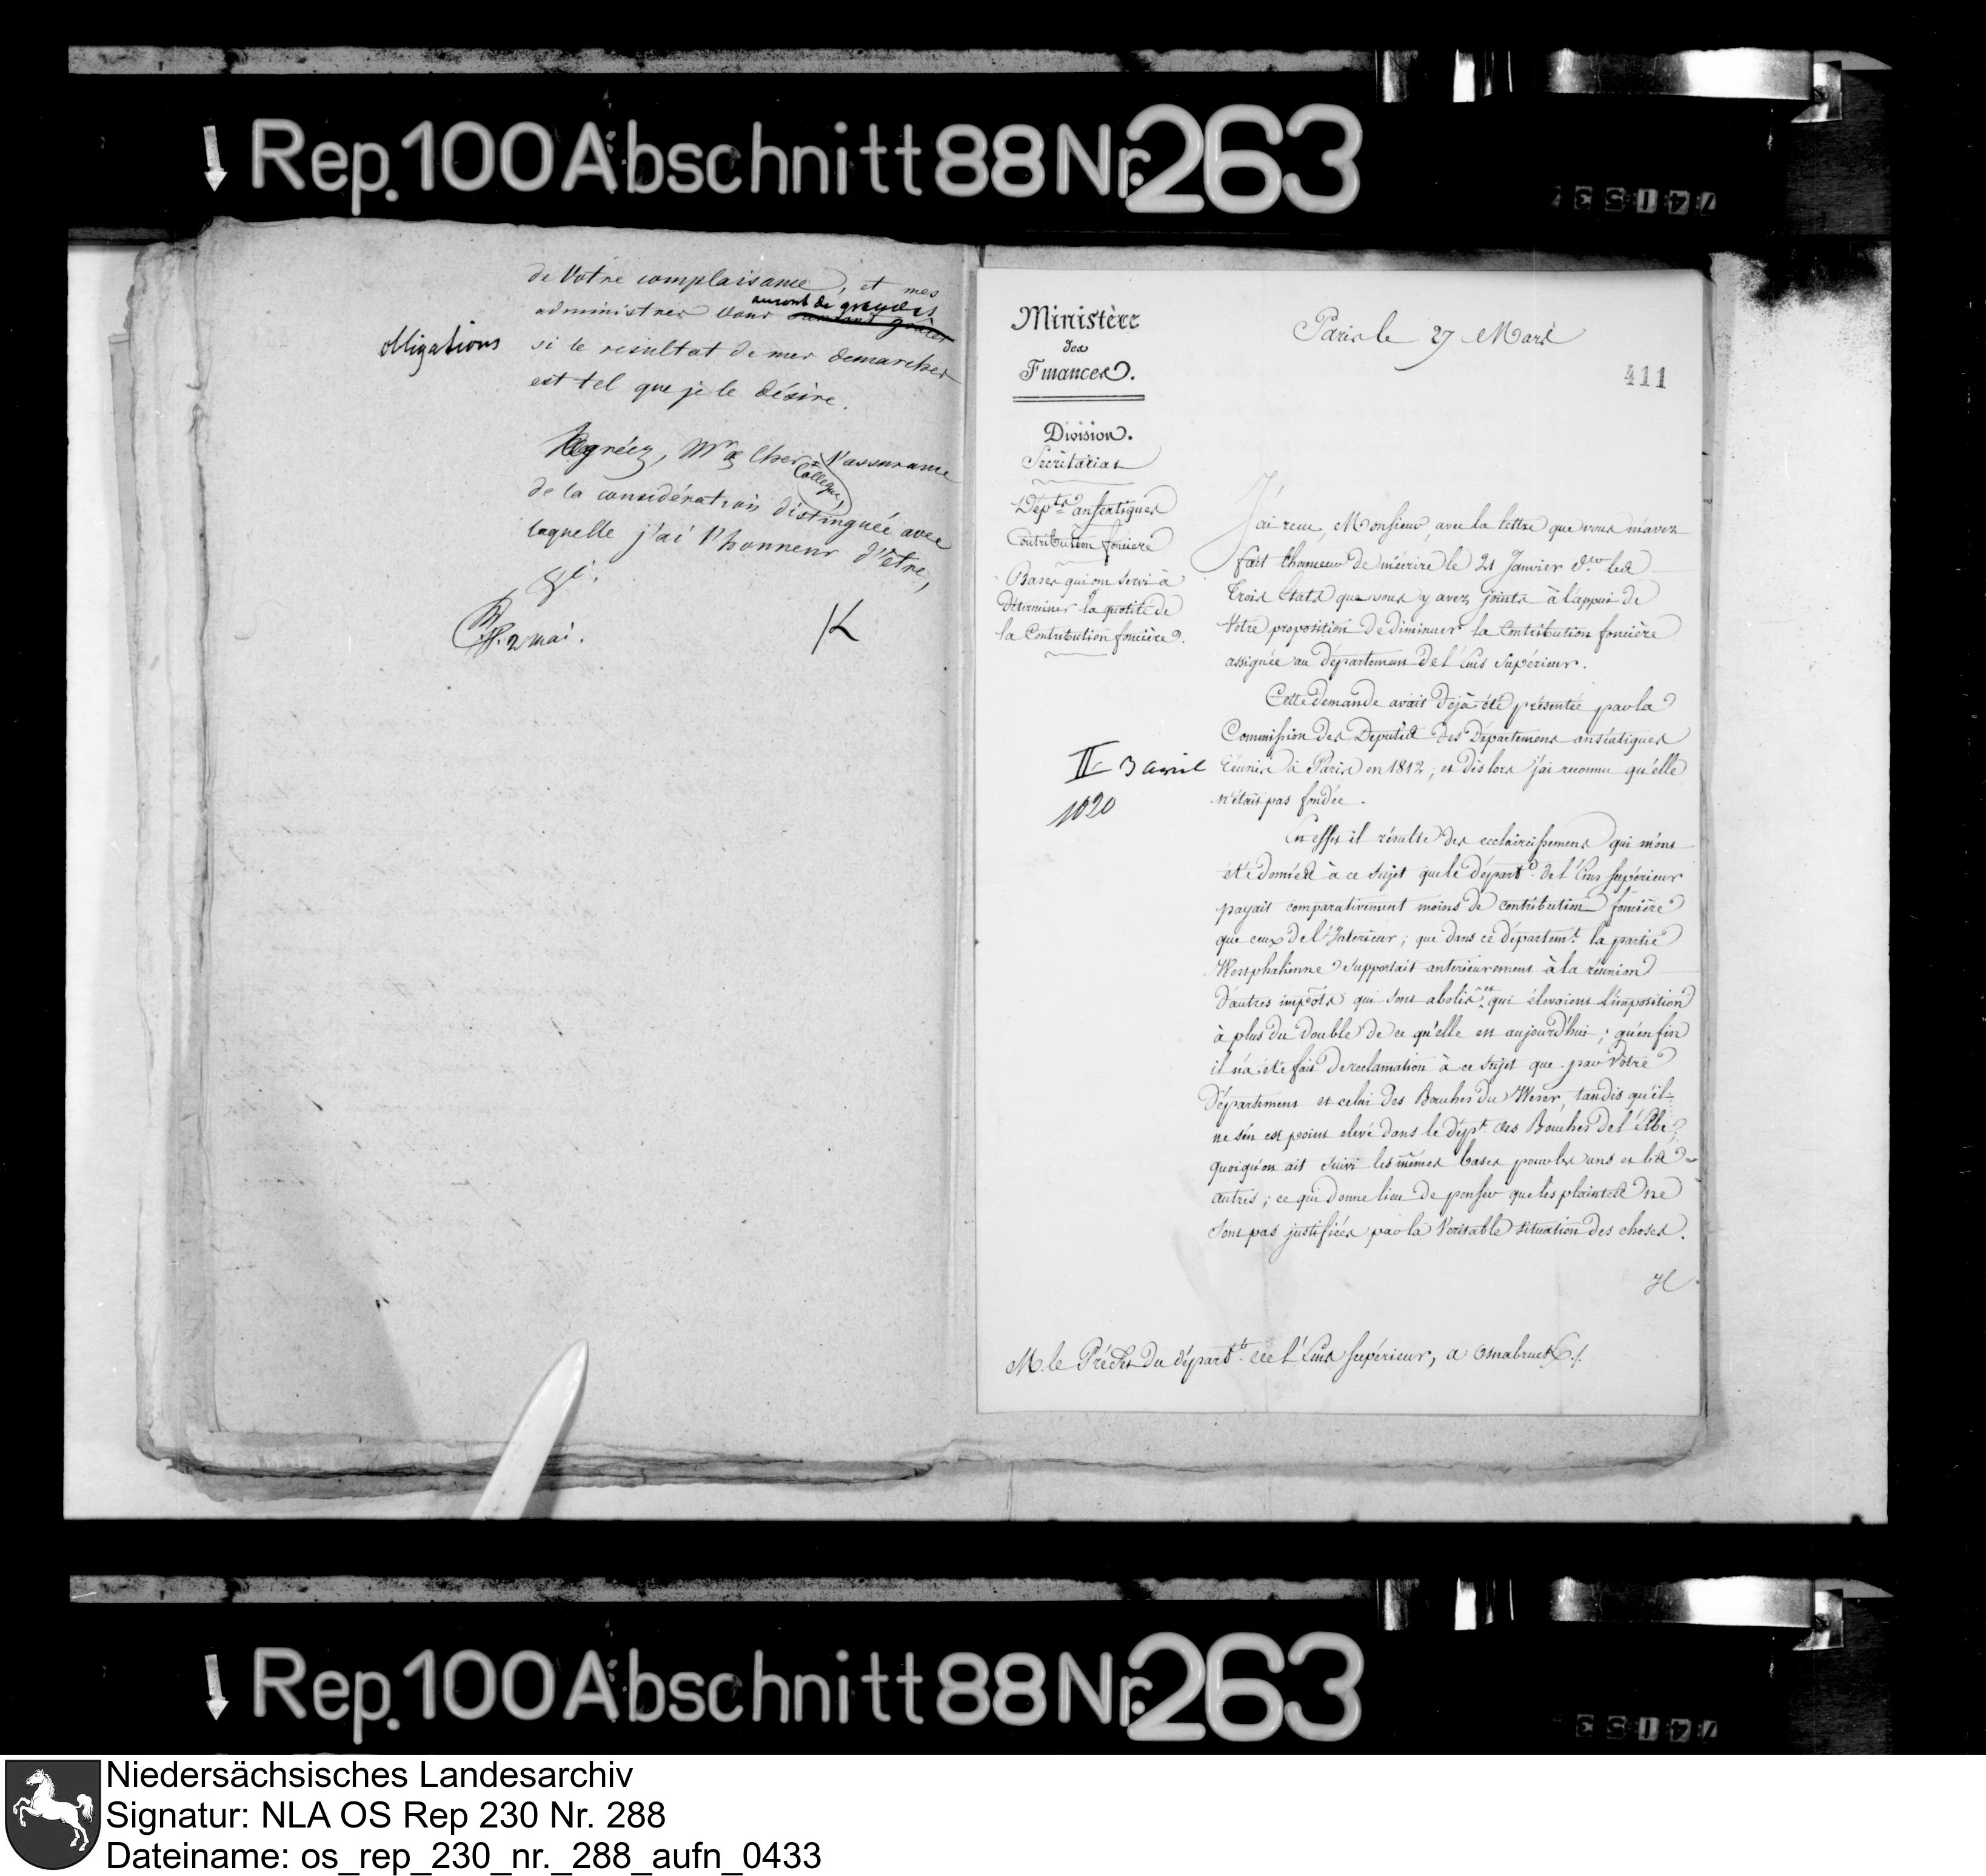 Rep. 100 Abschnitt 88 Nr. 263
de Votre complaisance, et mes
auront de grandes
administrés vous
obligations
si le résultat de mes demarches
est tel que je le désire.
Agréez, Mr & cher Collegue, l'assurance
de la considération distinguée avec
laquelle j'ai l'honneur d'être,
&c.
2 mai.
Ministère
des
Finances.
Division.
Secrétariat
Dép.ts anséatiques
Contribution foncière
Bases qui ont servi à
déterminer la quotité de
la Contribution foncière.
II 3 avril
1020
Paris le 27 Mars
411
J'ai reçu, Monsieur, avec la lettre que vous m'avez
fait l'honneur de m'écrire le 21 Janvier d.er les
trois Etats que vous y avez joints à l'appui de
Votre proposition de diminuer la Contribution foncière
assignée au département de l'Ems Supérieur.
Cette demande avait déjà été présentée par la
Commission des Députés des Départemens anséatiques
réunis à Paris en 1812; et dès lors j'ai reconnu qu'elle
n'était pas fondée.
En effet il résulte des ecclaircissemens qui m'ont
été donnés à ce sujet que le départ.t de l'Ems supérieur
payait comparativement moins de contribution foncière
que ceux de l'Intérieur; que dans ce départem.t la partie
Westphalienne supportait anterieurement à la réunion
d'autres impôts qui sont abolis et qui élevaient l'imposition
à plus du double de ce qu'elle est aujourd'hui; qu'enfin
il n'a été fait de reclamation à ce sujet que par Votre
Département et celui des Bouches du Weser, tandis qu'il
ne s'en est point elevé dans le dép.t des Bouches de l'Elbe,
quoiqu'on ait suivi les mêmes bases pour les uns et les
autres; ce qui donne lieu de penser que les plaintes ne
sont pas justifiées par la Veritable situation des choses.
M. le Préfet du départ.t de l'Ems supérieur, a Osnabruck
Rep. 100 Abschnitt 88 Nr. 263
Niedersächsisches Landesarchiv
Signatur: NLA OS Rep 230 Nr. 288
Dateiname: os_rep_230_nr._288_aufn_0433